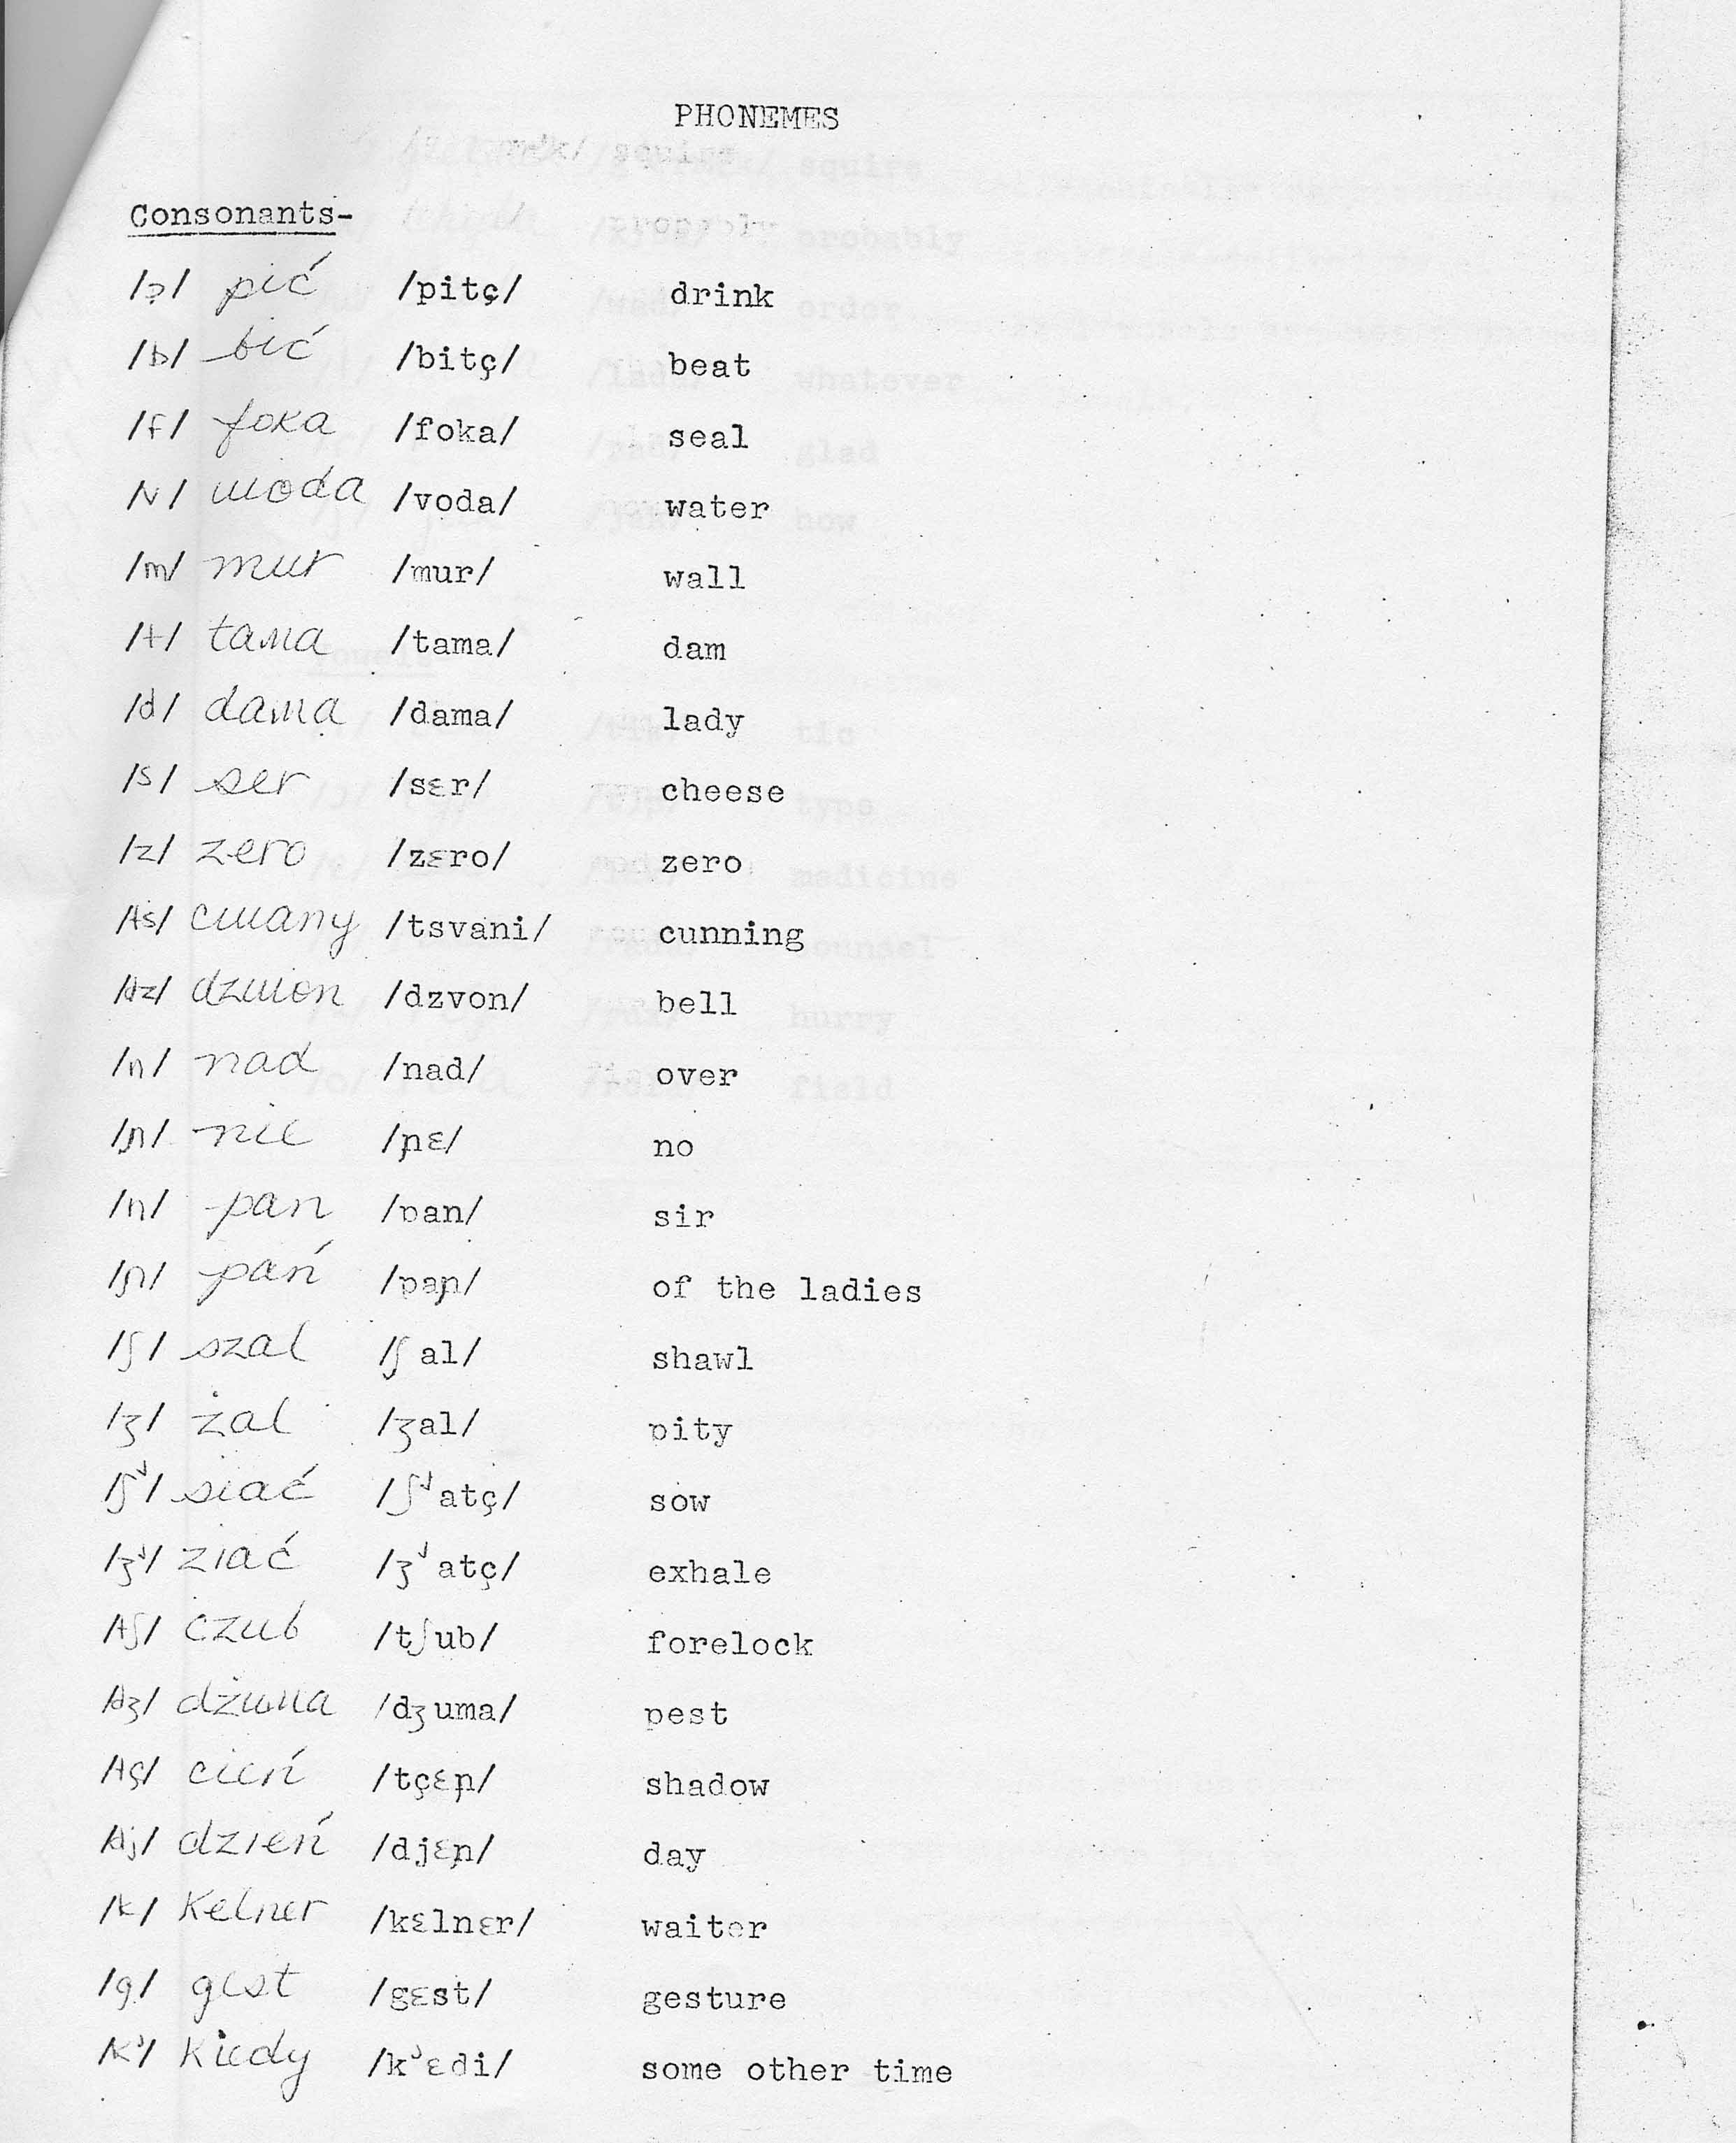 PHONEMES
Consonants-
/p/ pić /pitç/ drink
/b/ bić /bitç/ beat
/f/ foka /foka/ seal
/v/ woda /voda/ water
/m/ mur /mur/ wall
/t/ tama /tama/ dam
/d/ dama /dama/ lady
/s/ ser /sɛr/ cheese
/z/ zero /zɛro/ zero
/ts/ cwany /tsvani/ cunning
/dz/ dzwon /dzvon/ bell
/n/ nad /nad/ over
/ɲ/ nie /ɲɛ/ no
/n/ pan /pan/ sir
/ɲ/ pań /paɲ/ of the ladies
/ʃ/ szal /ʃal/ shawl
/ʒ/ żal /ʒal/ pity
/ʃʲ/ siać /ʃʲatç/ sow
/ʒʲ/ ziać /ʒʲatç/ exhale
/tʃ/ czub /tʃub/ forelock
/dʒ/ dżuma /dʒuma/ pest
/tç/ cień /tçɛɲ/ shadow
/dj/ dzień /djɛɲ/ day
/k/ Kelner /kɛlnɛr/ waiter
/g/ gest /gɛst/ gesture
/kʲ/ Kiedy /kʲɛdi/ some other time